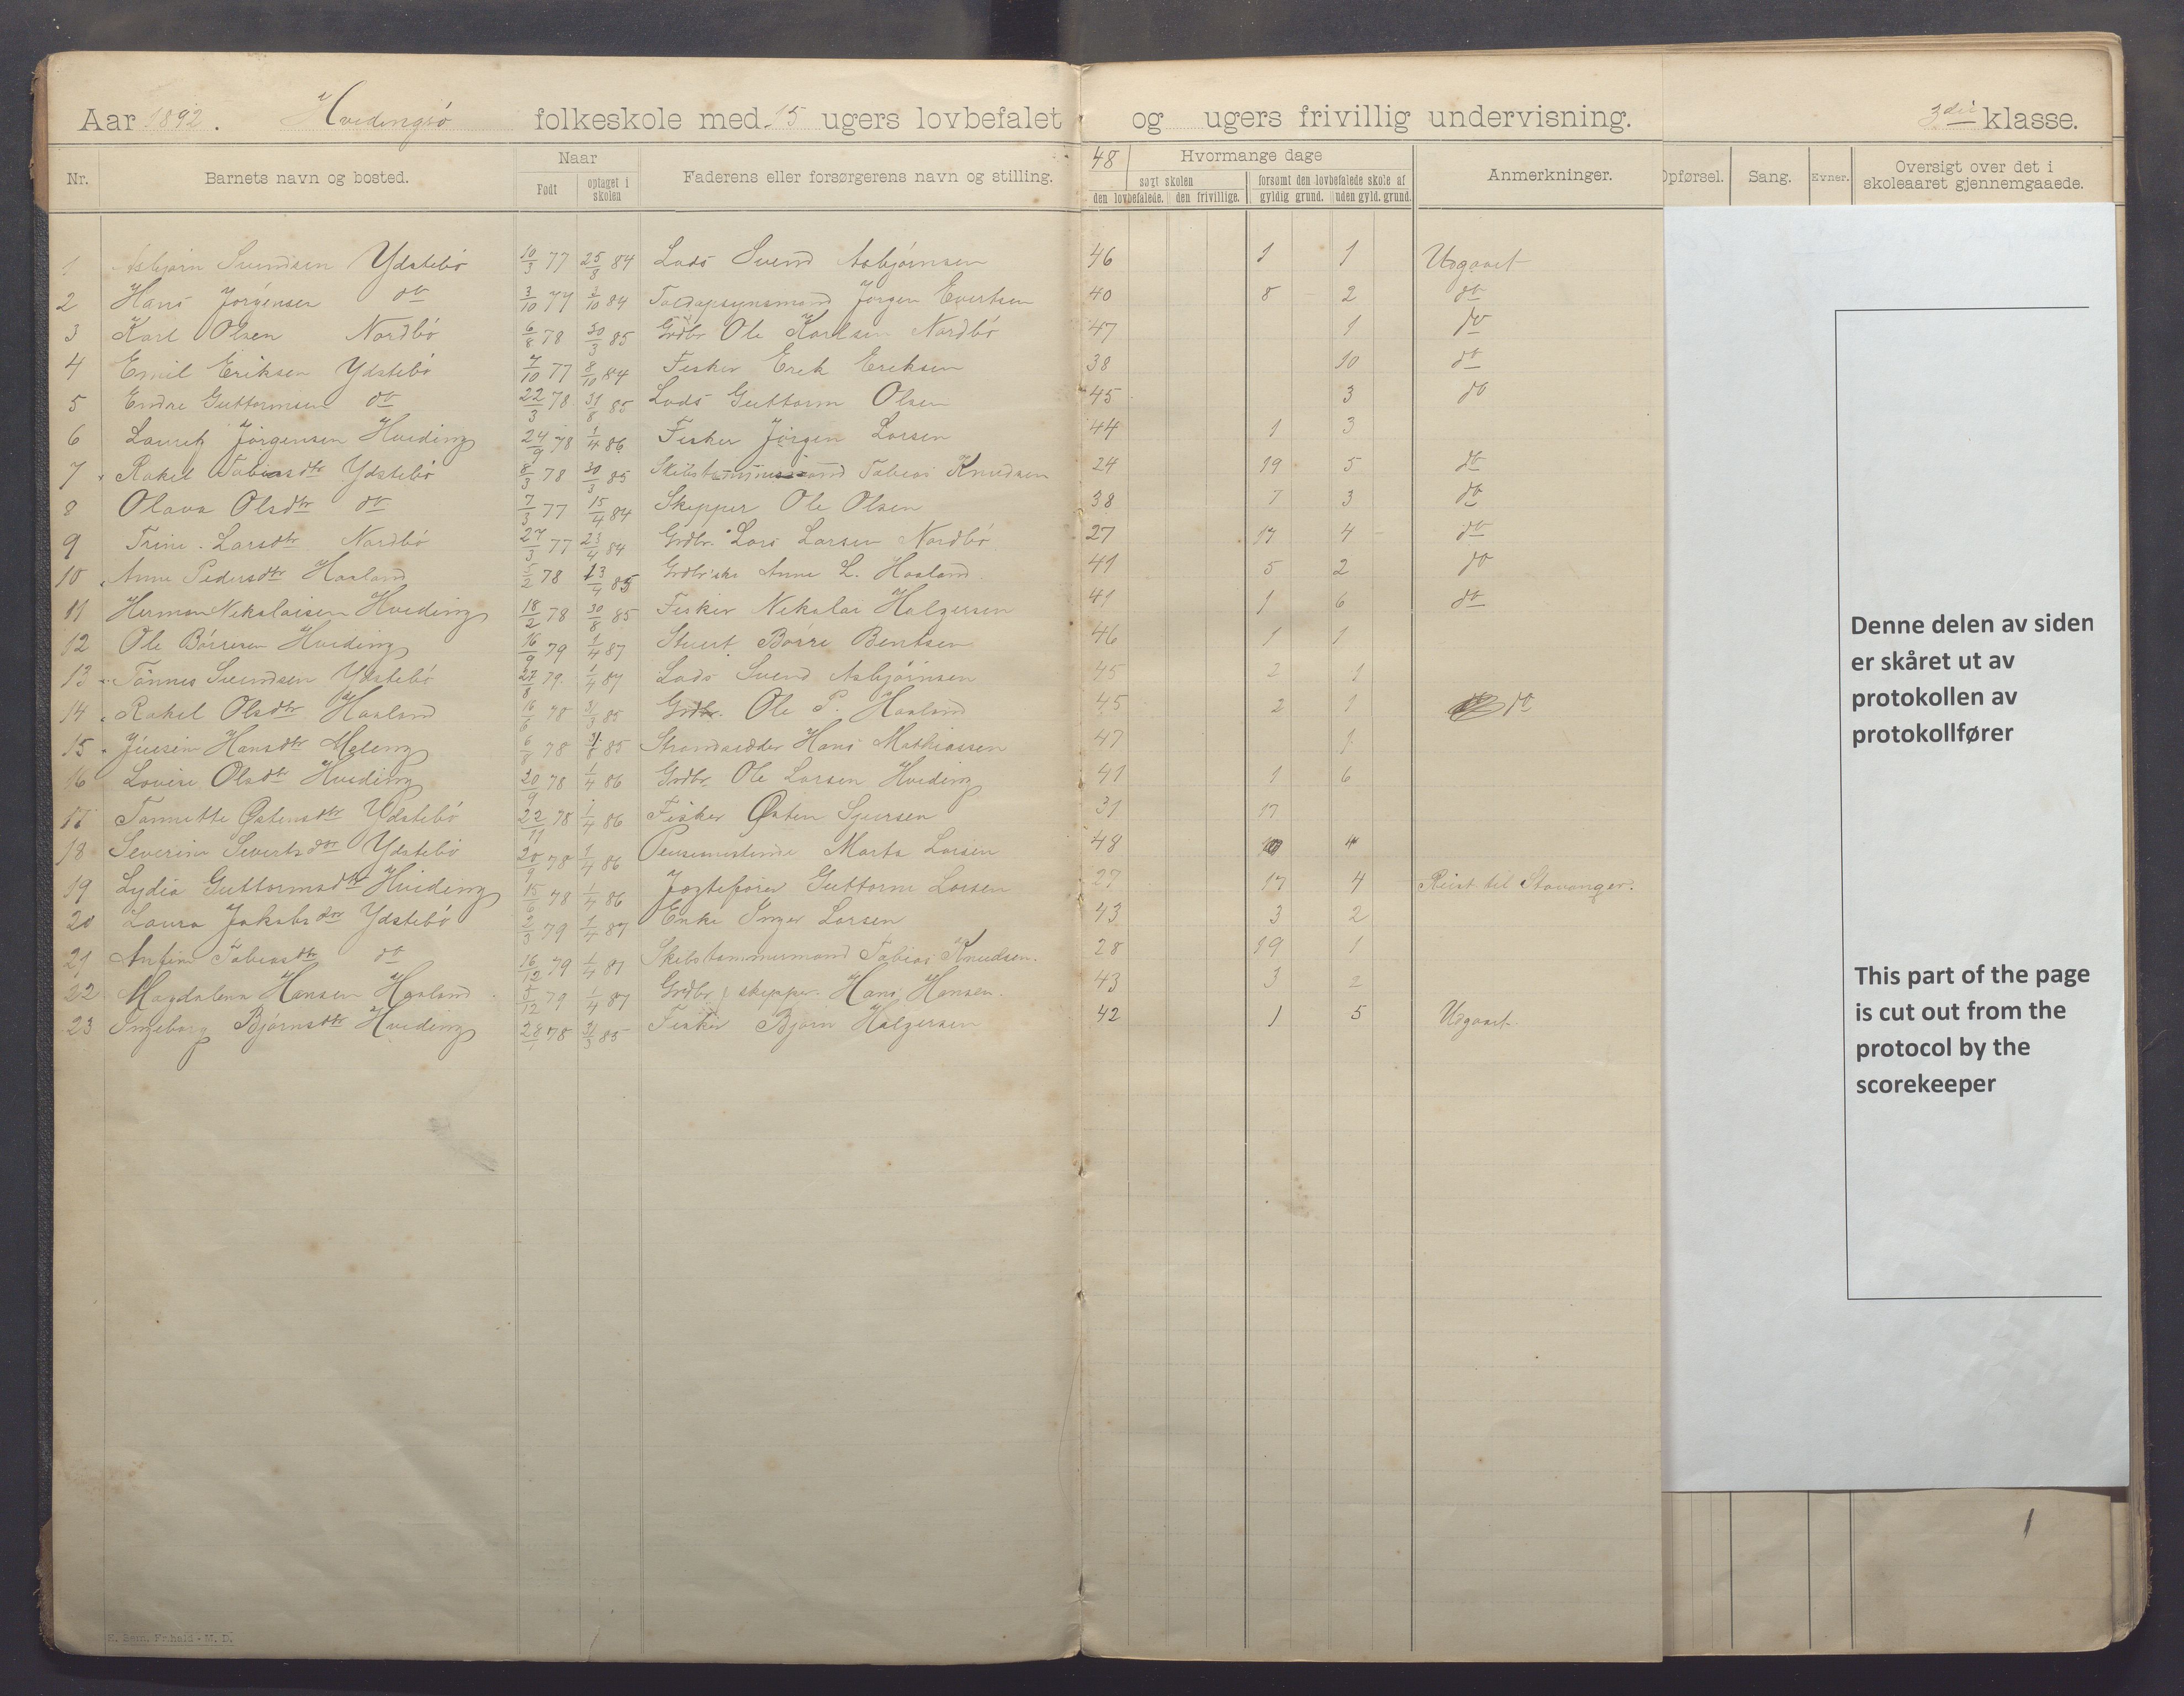 Aar 1892. Hvidingsö folkeskole med 15 ugers lovbefalet og ugers frivillig undervisning. 3die klasse.
Nr. Barnets navn og bosted. Naar Født optaget i skolen Faderens eller forsørgerens navn og stilling. 48 Hvormange dage søgt skolen den lovbefalede. den frivillige. forsømt den lovbefalede skole af gyldig grund. uden gyld. grund. Anmerkninger. Opførsel. Sang. Evner. Oversigt over det i skoleaaret gjennemgaaede.
1 Asbjørn Svendsen Ydstebö 10/3 77 25/8 84 Lods Svend Asbjørnsen 46 1 1 Udgaaet
2 Hans Jørgensen do 3/10 77 3/10 84 Toldopsynsmand Jørgen Evertsen 40 8 2 do
3 Karl Olsen Nordbö 6/8 78 30/3 85 Grdbr Ole Karlsen Nordbö 47 1 do
4 Emil Eriksen Ydstebö 7/10 77 8/10 84 Fisker Erik Eriksen 38 10 do
5 Endre Guttormsen do 22/3 78 31/8 85 Lods Guttorm Olsen 45 3 do
6 Lauritz Jörgensen Hviding 24/9 78 1/4 86 Fisker Jörgen Larsen 44 1 3
7 Rakel Tobiasdtr Ydstebö 8/3 78 30/3 85 Tobias Knudsen 24 19 5 do
8 Olava Olsdtr do 7/3 77 15/4 84 Skipper Ole Olsen 38 7 3 do
9 Trine Larsdtr Nordbö 27/3 77 23/4 84 Grdbr. Lars Larsen Nordbö 27 17 4 do
10 Anne Pedersdtr Haaland 5/2 78 13/4 85 Anne L. Haaland 41 5 2 do
11 Herman Nikolaisen Hviding 18/2 78 30/8 85 Fisker Nikolai Holgersen 41 1 6 do
12 Ole Börresen Hviding 16/9 79 1/4 87 Stuert Börre Bentsen 46 1 1
13 Tönnes Svendsen Ydstebö 27/8 79 1/4 87 Lods Svend Asbjörnsen 45 2 1
14 Rakel Olsdtr Haaland 16/6 78 31/3 85 Grdbr. Ole P. Haaland 45 2 1 do
15 Hansdtr Meling 6/8 78 31/8 85 Strandsidder Hans Mathiassen 47 1
16 Lovise Olsdtr Hviding 20/9 78 1/4 86 Grdbr. Ole Larsen Hviding 41 1 6
17 Tonnette Østensdtr Ydstebö 22/11 78 1/4 86 Fisker Østen Sjursen 31 17
18 Severine Sivertsdtr Ydstebö 20/9 78 1/4 86 Marta Larsen 48
19 Lydia Guttormsdtr Hviding 15/6 78 1/4 86 Jagtefører Guttorm Larsen 27 17 4 Reist til Stavanger.
20 Laura Jakobsdtr Ydstebö 2/3 79 1/4 87 Enke Inger Larsen 43 3 2
21 Tobiasdtr do 16/12 79 1/4 87 Skibstømmermand Tobias Knudsen. 28 19 1
22 Magdalena Hansen Haaland 5/12 79 1/4 87 Grdbr / skipper. Hans Hansen. 43 3 2
23 Ingeborg Bjørnsdtr Hviding 28/1 78 31/3 85 Fisker Bjørn Holgersen 42 1 5 Udgaaet.
Denne delen av siden
er skåret ut av
protokollen av
protokollfører
This part of the page
is cut out from the
protocol by the
scorekeeper
1